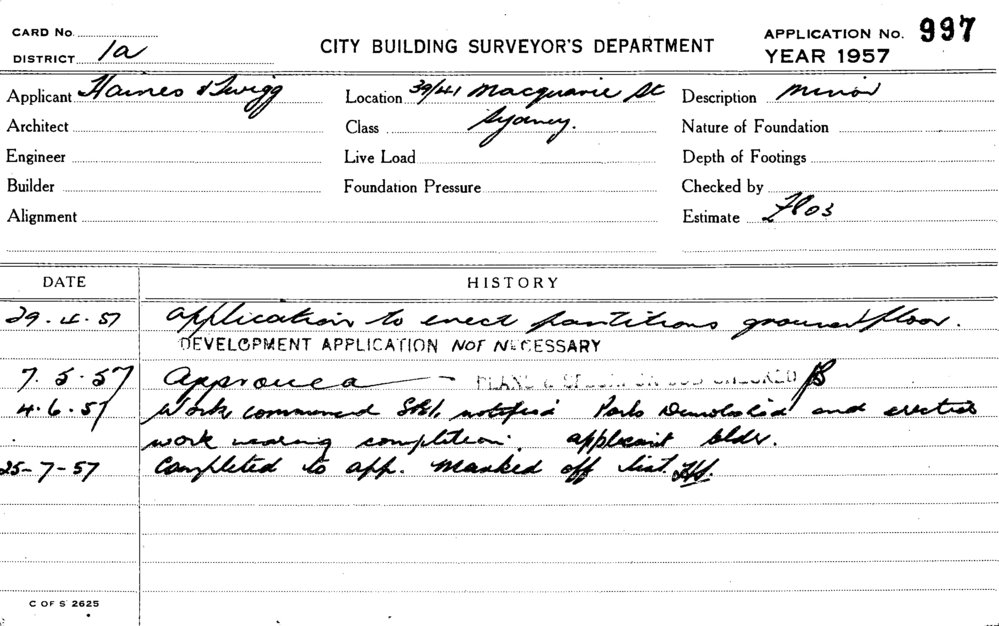 CARD No.
DISTRICT 1a
CITY BUILDING SURVEYOR'S DEPARTMENT
APPLICATION No. 997
YEAR 1957
Applicant Haines & Twigg
Location 39/41 Macquarie St
Sydney.
Description Minor
Architect
Class
Nature of Foundation
Engineer
Live Load
Depth of Footings
Builder
Foundation Pressure
Checked by
Alignment
Estimate £103
DATE HISTORY
29.4.57 Application to erect partitions ground floor.
DEVELOPMENT APPLICATION NOT NECESSARY
7.5.57 Approved PLANS & SPECIF'ON CHECKED
4.6.57 Work commenced notified and
work nearing completion. applicant bldr.
25-7-57 Completed to app. Marked off list.
C OF S 2625